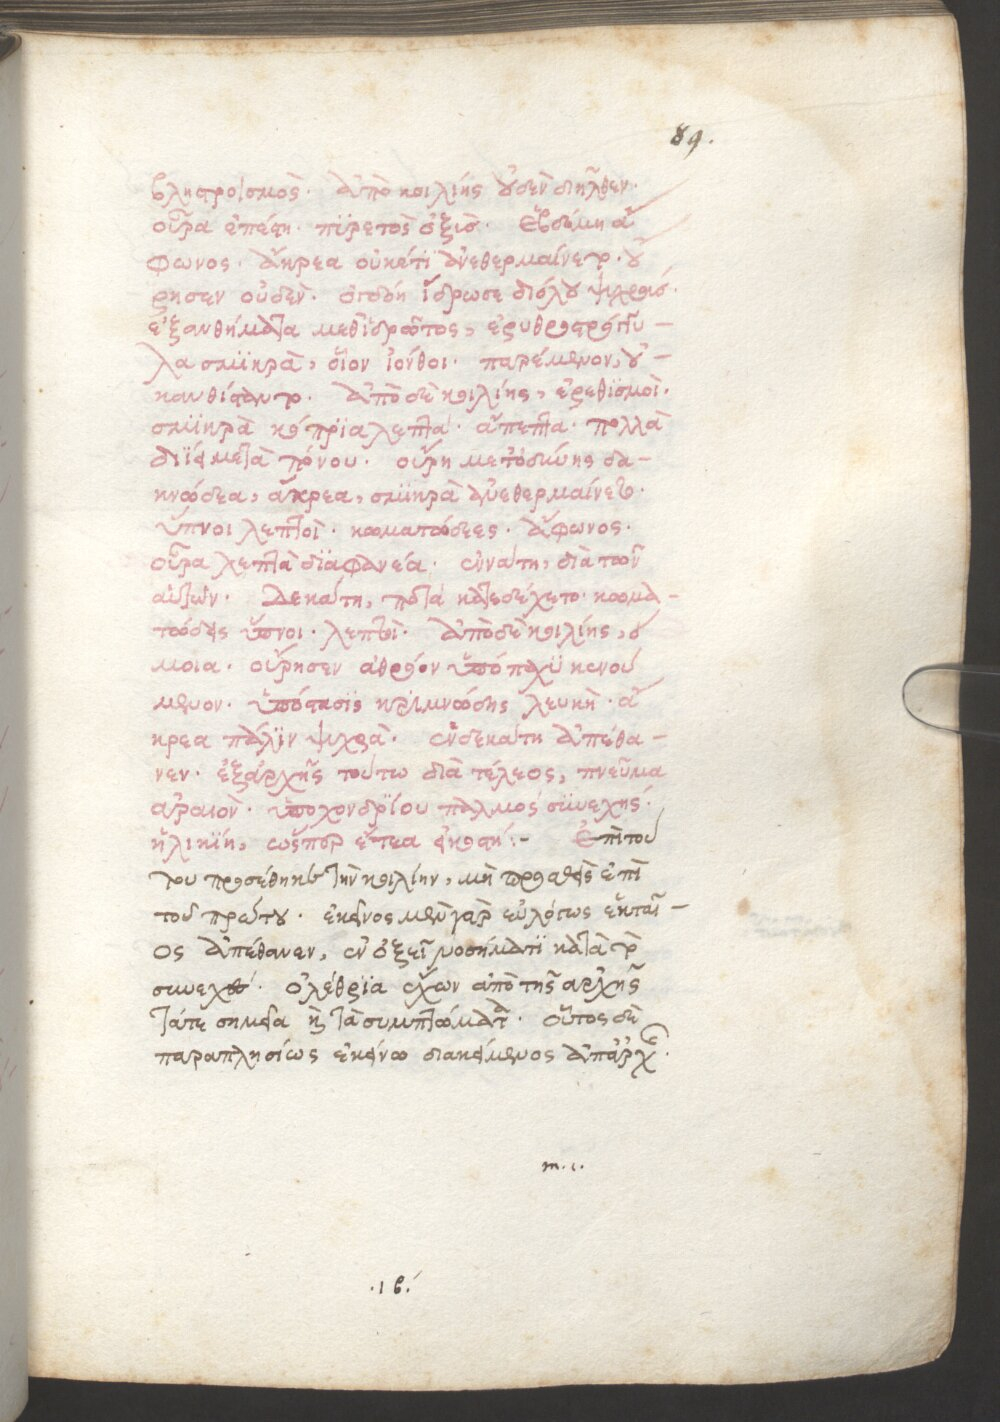 89.
βλητροισμὸς· ἀπὸ κοιλίης οὐδὲν διῆλθεν·
οὖρα ἐπέστη· πϋρετὸς ὀξὺς· ἑβδόμη ἄ
φωνος· ἄκρεα οὐκέτι ἀνεθερμαίνετο· οὔ
ρησεν οὐδὲν· ὀγδόη ἵδρωσε διόλου ψυχρῶ·
ἐξανθήματα μεθ' ἱδρῶτος, ἐρυθρὰ στρογγύ-
λα σμικρὰ, οἷον ἴονθοι· παρέμενον, οὐ-
καθίστατο· ἀπὸ δὲ κοιλίης, ἐρεθισμοὶ·
σμικρὰ κόπρια λεπτὰ· ἄπεπτα· πολλὰ
διῄει μετὰ πόνου· οὔρη μετ' ὀδύνης δα-
κνώδεα, ἄκρεα, σμικρὰ ἀνεθερμαίνετο·
ὕπνοι λεπτοὶ· κωματώδεες· ἄφωνος·
οὖρα λεπτὰ διαφανέα· ἐννάτη, διὰ τῶν
αὐτῶν· Δεκάτη, ποτὰ κατεδέχετο· κωμα-
τώδης ὕπνοι· λεπτοὶ· ἀπὸ δὲ κοιλίης, ὅ
μοια· οὔρησεν ἀθρόον ὑπόπαχϋ κείνου
μενον· ὑπόστασις κριμνώδης λευκὴ· ἄ
κρεα πάλιν ψυχρὰ· ἑνδεκάτη ἀπέθα-
νεν· ἐξ ἀρχῆς τούτω διὰ τέλεος, πνεῦμα
ἀραιὸν· ὑποχονδρίου παλμὸς συνεχής·
ἡλικίη, ὡς περ ἔτεα εἴκοσι:- Ἐπὶ τού
του προσέθηκε τὴν κοιλίην, μὴ προσθεὶς ἐπὶ
τοῦ πρώτου· ἐκεῖνος μὲν γὰρ εὐλόγως ἑκταῖ-
ος ἀπέθανεν, ἐν ὀξεῖ νοσήματι κατὰ τὸ
συνεχὲς· ὀλέθρια ἔχων ἀπὸ τῆς ἀρχῆς
τά τε σημεῖα καὶ τὰ συμπτώματα· οὗτος δὲ
παραπλησίως ἐκείνω διακείμενος ἀπ' ἀρχῆς·
m.ι.
·ιβ·